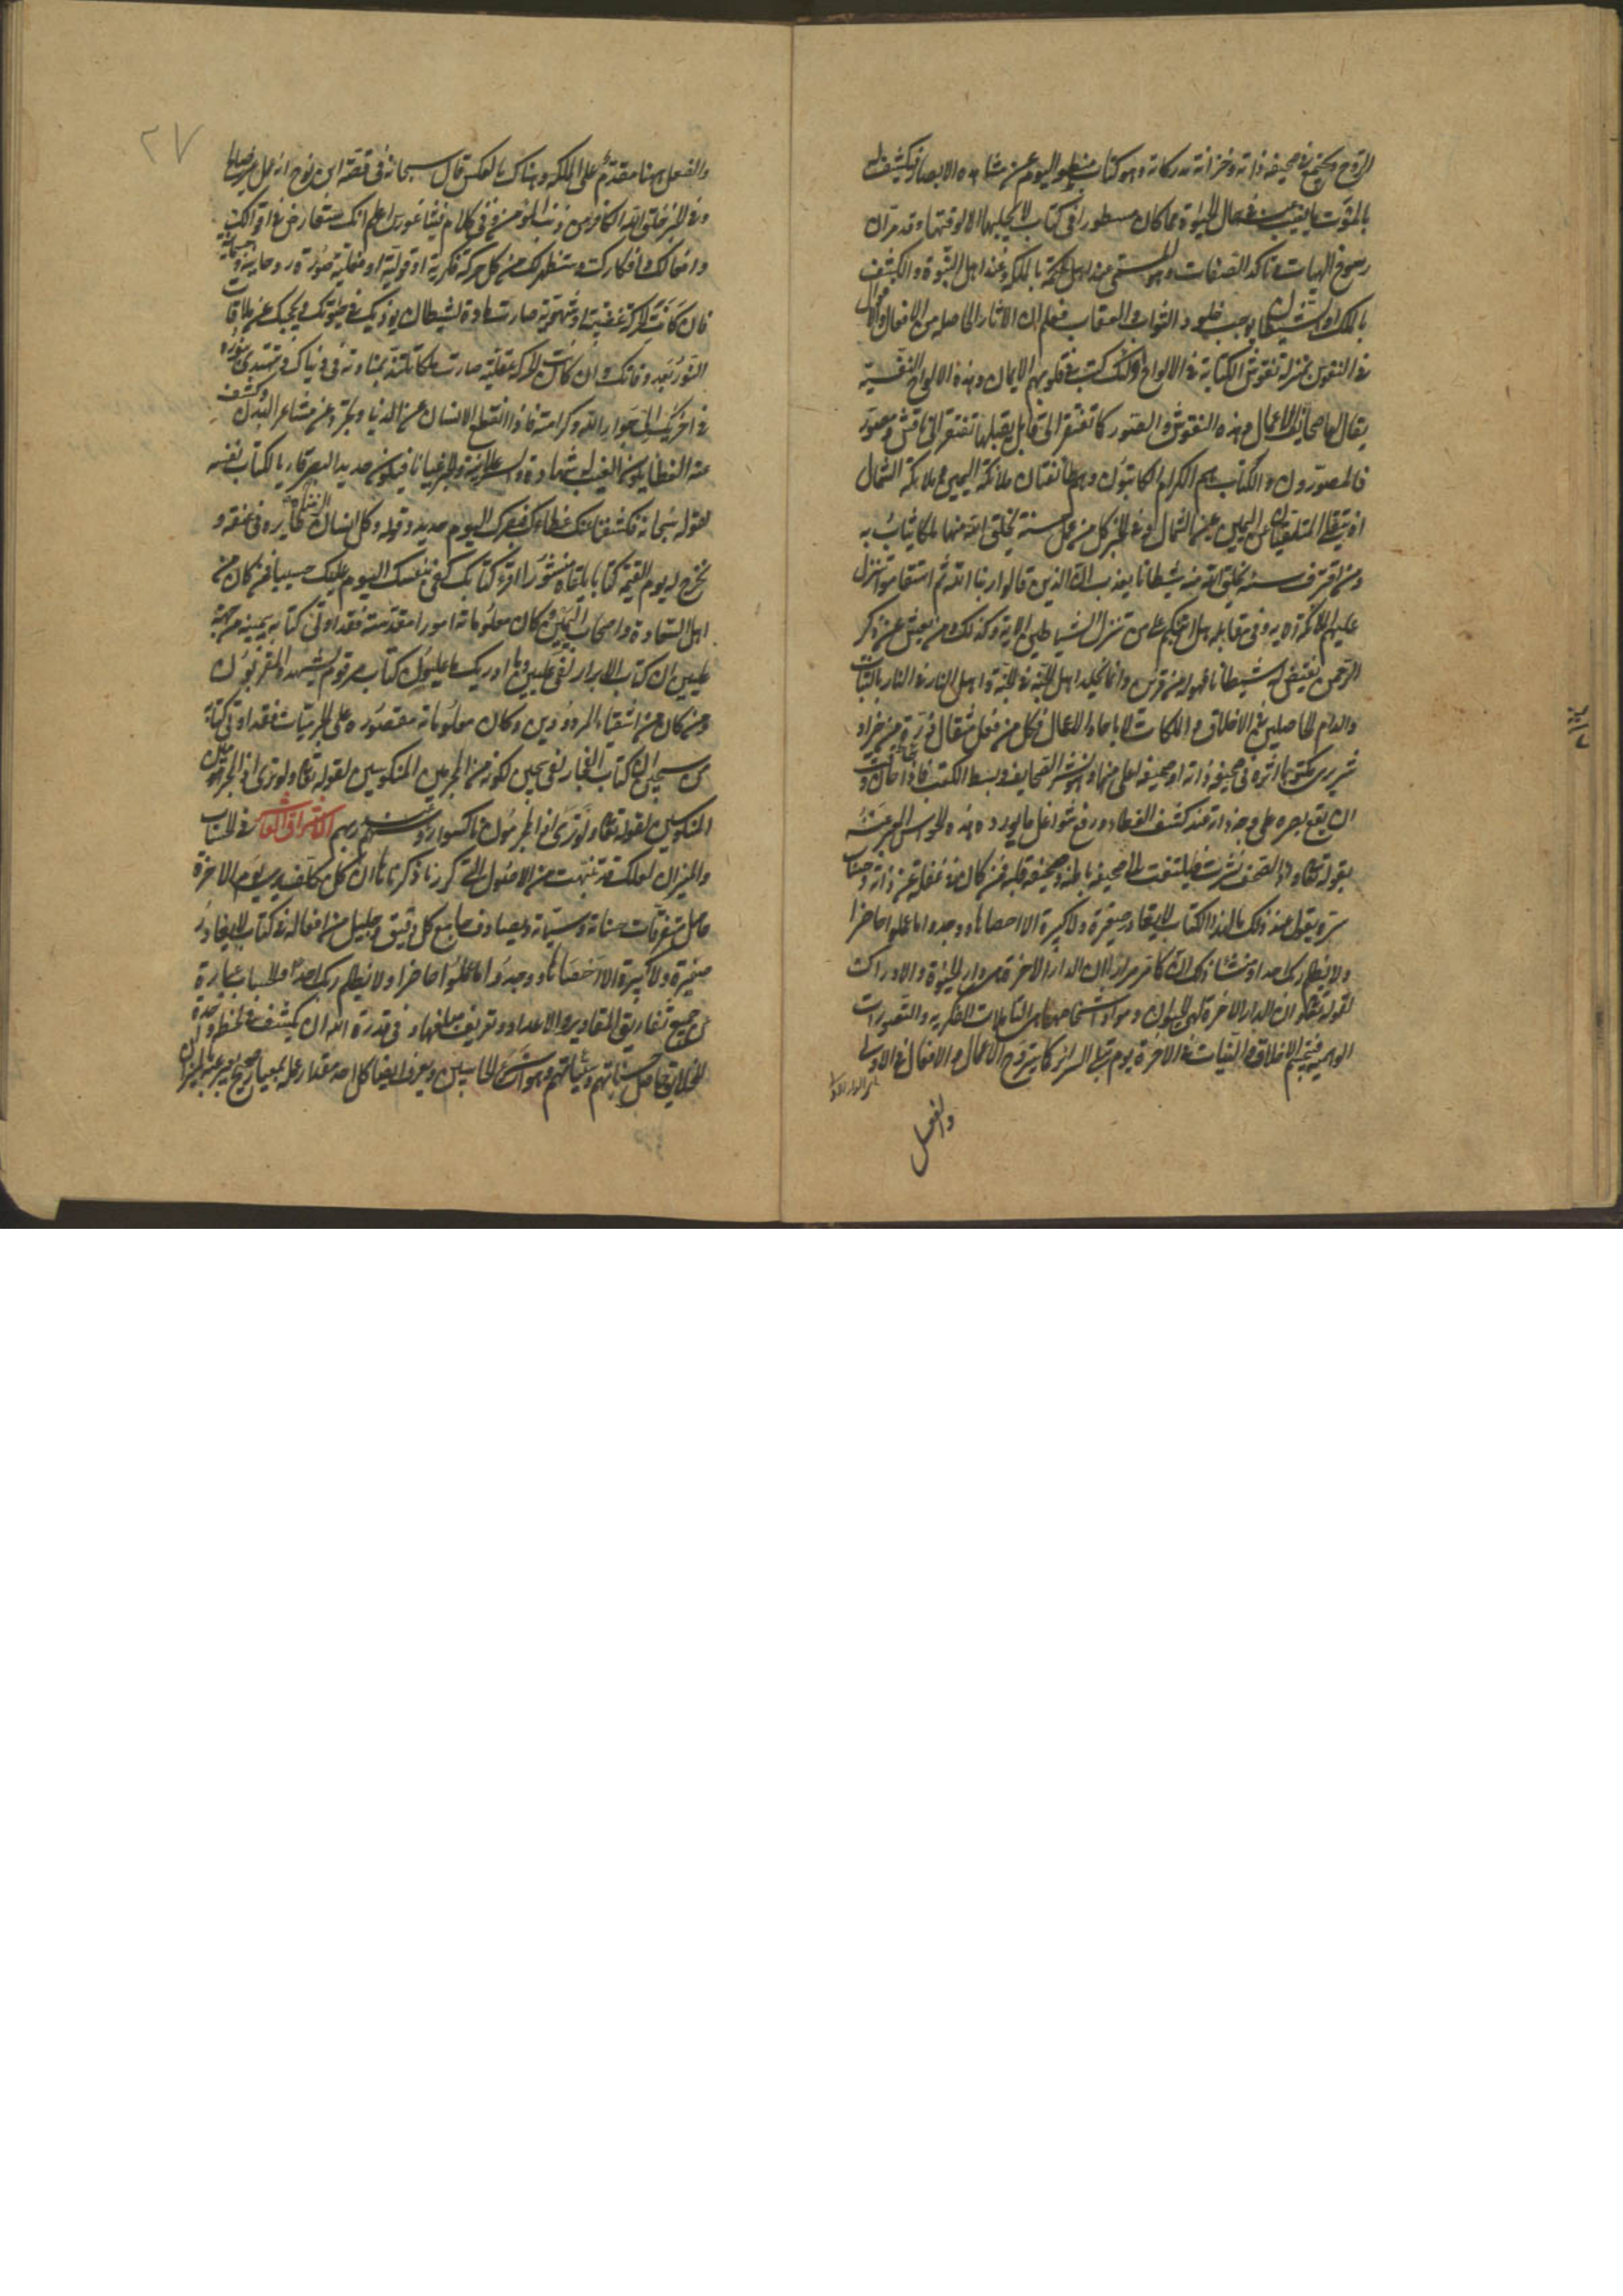 الروح ويجتمع في صحيفة ذاته وخزانة مدركاته وهو كتاب منطو اليوم عن مشاهدة الابصار فيكشف له
بالموت ما يغيب عنه في حال الحيوة مما كان مسطورا في كتاب لا يجليها الا لوقتها وقد مر ان
رسوخ الهيات وتاكد الصفات وهو المسمى عند اهل الحكمة بالملكة وعند اهل النبوة والكشف
بالملك والشيطان يوجب خلود الثواب والعقاب فعلم ان الاثار الحاصلة من الافعال والاقوال
في النفوس بمنزلة نقوش الكتابة في الالواح اولئك كتب في قلوبهم الايمان وهذه الالواح النفسية
يقال لها صحايف الاعمال وهذه النقوش والصور كما تفتقر الى قابل يقبلها تفتقر الى ناقش ومصور
فالمصورون والكتاب هم الكرام الكاتبون وهم طائفتان ملائكة اليمين وملائكة الشمال
اذ يتلقى المتلقيان عن اليمين وعن الشمال وفي الخبر كل من عمل حسنة يخلق الله منها ملكا يثاب به
ومن اقترف سيئة يخلق الله منه شيطانا يعذب به ان الذين قالوا ربنا الله ثم استقاموا تتنزل
عليهم الملائكة الاية وفي مقابله هل انبئكم على من تنزل الشياطين الاية وكذلك ومن يعش عن ذكر
الرحمن نقيض له شيطانا فهو له قرين وانما يخلد اهل الجنة في الجنة واهل النار في النار بالثبات
والدوام الحاصلين في الاخلاق والملكات لا باحاد الاعمال فكل من فعل مثقال ذرة من خير او
شر يرى مكتوبا اثره في صحيفة ذاته او صحيفة اعلى منها وهو نشر الصحايف وبسط الكتب فاذا حان وقت
ان يقع بصره على وجه ذاته عند كشف الغطاء ورفع شواغل ما يورده هذه الحواس المعبر عنه
بقوله تعالى واذا الصحف نشرت فيلتفت الى صحيفة باطنه وصحيفة قلبه فمن كان في غفلة عن ذاته وحساب
سره يقول عند ذلك ما لهذا الكتاب لا يغادر صغيرة ولا كبيرة الا احصاها ووجدوا ما عملوا حاضرا
ولا يظلم ربك احدا ومنشا ذلك كما مر مرارا لان الدار الاخرة هي دار الحيوة والادراك
لقوله تعالى وان الدار الاخرة لهي الحيوان ومواد اشخاصها هي التاملات الفكرية والتصورات
الوهمية فيتجسم الاخلاق والنيات في الاخرة يوم تبلى السرائر كما يتروح الاعمال والافعال في الاولى
والفعل
٢٧
والفعل ههنا مقدم على الملكة وهناك بالعكس قال سبحانه في قصة ابن نوح انه عمل غير صالح
وفي الخبر خلق الله الكافر من ذنب المؤمن وفي كلام فيثاغورس اعلم انك ستعارض في اقوالك
وافعالك وافكارك وستظهر لك من كل حركة فكرية او قولية او فعلية صورة روحانية وجسمانية
فان كانت الحركة غضبية او شهوية صارت مادة لشيطان يوذيك في حيوتك ويحجبك عن ملاقات
النور بعد وفاتك وان كانت الحركة عقلية صارت ملكا تلتذ بمنادمته في دنياك وتهتدي بنوره
في اخريك الى جوار الله وكرامته فاذا انقطع الانسان عن الدنيا وتجرد عن مشاعر البدن وكشف
عنه الغطاء يكون الغيب له شهادة والسر علانية والخبر عيانا فيكون حديد البصر قاريا لكتاب نفسه
لقوله سبحانه فكشفنا عنك غطاءك فبصرك اليوم حديد وقوله وكل انسان الزمناه طايره في عنقه و
نخرج له يوم القيمة كتابا يلقاه منشورا اقرء كتابك كفى بنفسك اليوم عليك حسيبا فمن كان من
اهل السعادة واصحاب اليمين وكان معلوماته امورا مقدسة فقد اوتي كتابه بيمينه من جهة
عليين ان كتاب الابرار لفي عليين وما ادريك ما عليون كتاب مرقوم يشهده المقربون
ومن كان من اشقياء المردودين وكان معلوماته مقصورة على الجرميات فقد اوتي كتابه
من سجين ان كتاب الفجار لفي سجين لكونه من المجرمين المنكوسين لقوله تعالى ولو ترى اذ المجرمون
المنكوسين لقوله تعالى ولو ترى اذ المجرمون ناكسوا رؤسهم عند ربهم الاشراق العاشر في الحساب
والميزان لعلك قد تنبهت من الاصول التي كررنا ذكرها ان كل مكلف يرى يوم الاخرة
حاصل متفرقات حسناته وسيئاته ويصادف جامع كل دقيق وجليل من افعاله في كتاب لا يغادر
صغيرة ولا كبيرة الا احصاها ووجدوا ما عملوا حاضرا ولا يظلم ربك احدا والحساب عبارة
عن جمع تفاريق المقادير والاعداد وتعريف مبلغها وفي قدرة الله ان يكشف في لحظة واحدة
للخلايق حاصل حسناتهم وسيئاتهم وهو اسرع الحاسبين ويعرف ايضا كل احد مقدار عمله بمعيار صحيح يعبر عنه بالميزان